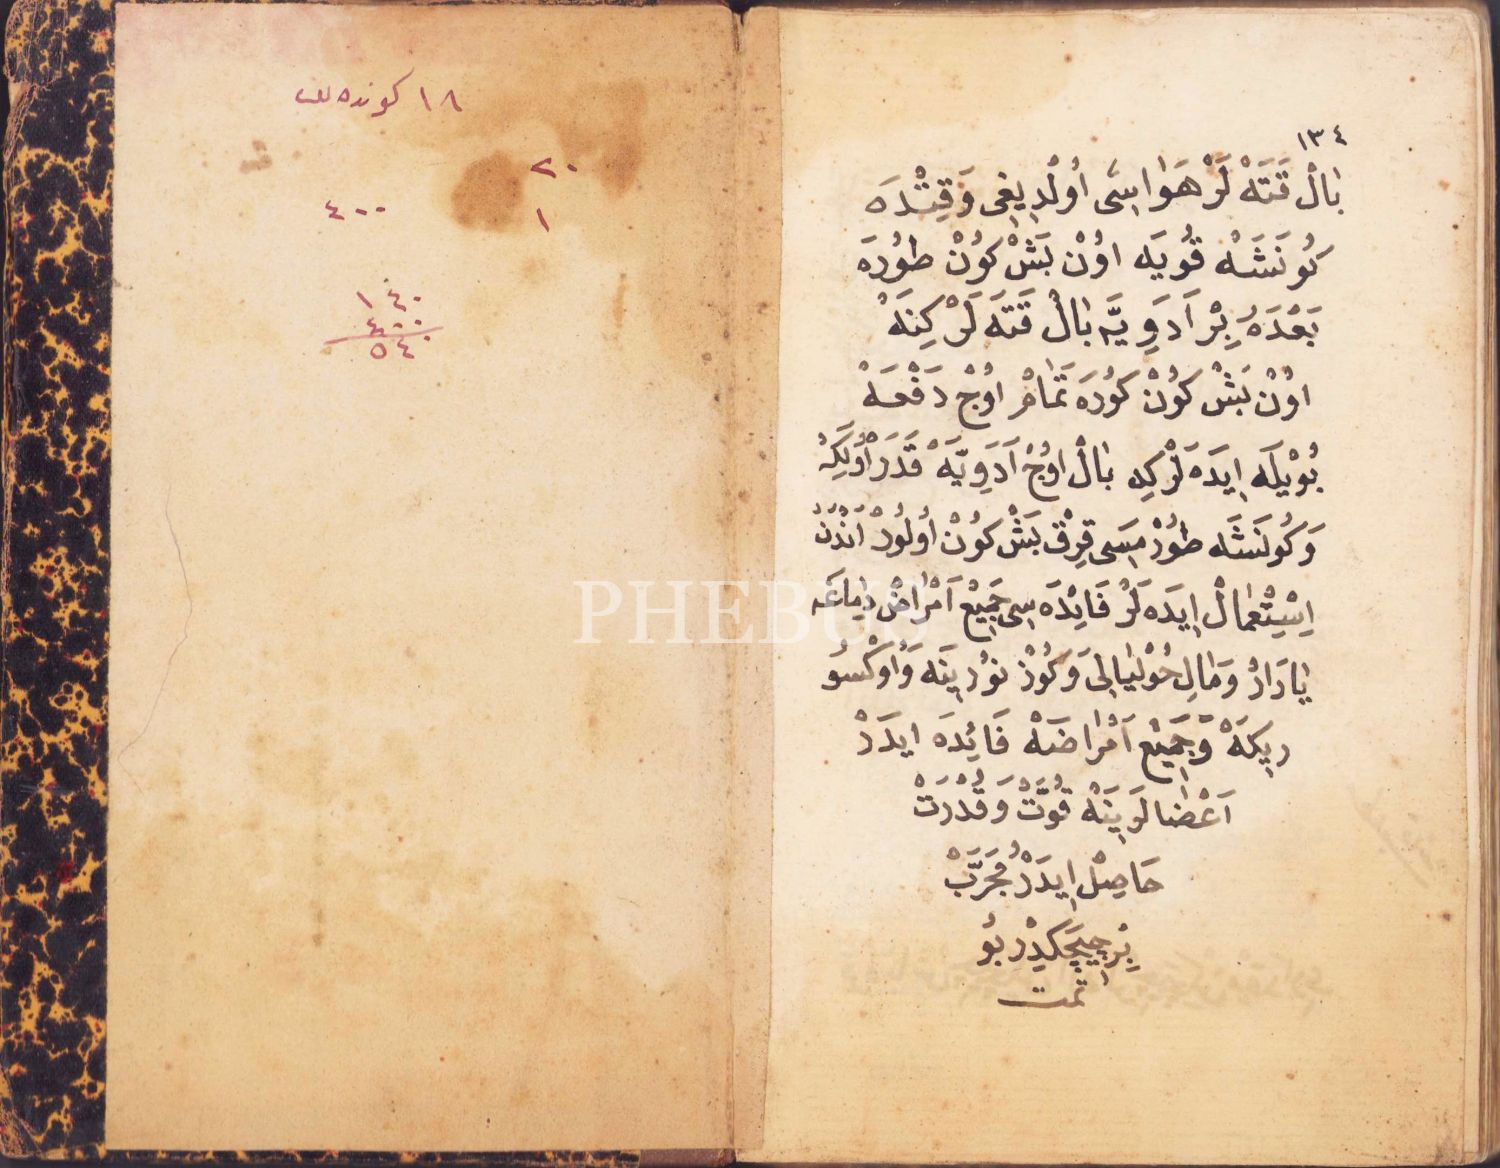 ١٣٤
بَالْ قَتَهْ لَرْ هَوَاسِى اُولْدِيغِى وَقِتْدَه
كُونَشَهْ قُويَه اوُنْ بَشْ كُونْ طُورَه
بَعْدَهُ بِرْ اَدَوِيَّه بَالْ قَتَه لَرْ كِنَهْ
اوُنْ بَشْ كُونْ كُورَه تَمَامْ اوُچْ دَفْعَهْ
بُويْلَه ايدَه لَرْ كِه بَالْ اوُچْ اَدَوِيَّهْ قَدَرْ اُولَكِهْ
وَكُونَشَه طُورْمَسِى قِرْقْ بَشْ كُونْ اُولُورْ اَنْدَنْ
اِسْتِعْمَالْ ايدَه لَرْ فَائِدَه سِى جَمِيْعِ اَمْرَاضْ دِمَاغَه
يَارَارْ وَمَالِخُولْيَالِى وَكُوزْ نُورِينَه وَاوُكْسُو
رِيكَهْ وَجَمِيْعِ اَمْرَاضَهْ فَائِدَه ايدَرْ
اَعْضَالَرِينَهْ قُوَّتْ وَقُدْرَتْ
حَاصِلْ ايدَرْ مُجَرَّبْ
بِرْ چِيچَكْدِرْ بُو
تمت
١٨ كونده
٢٠
١
٤٠٠
١٤٠
٤٠٠
٥٤٠
PHEBUS